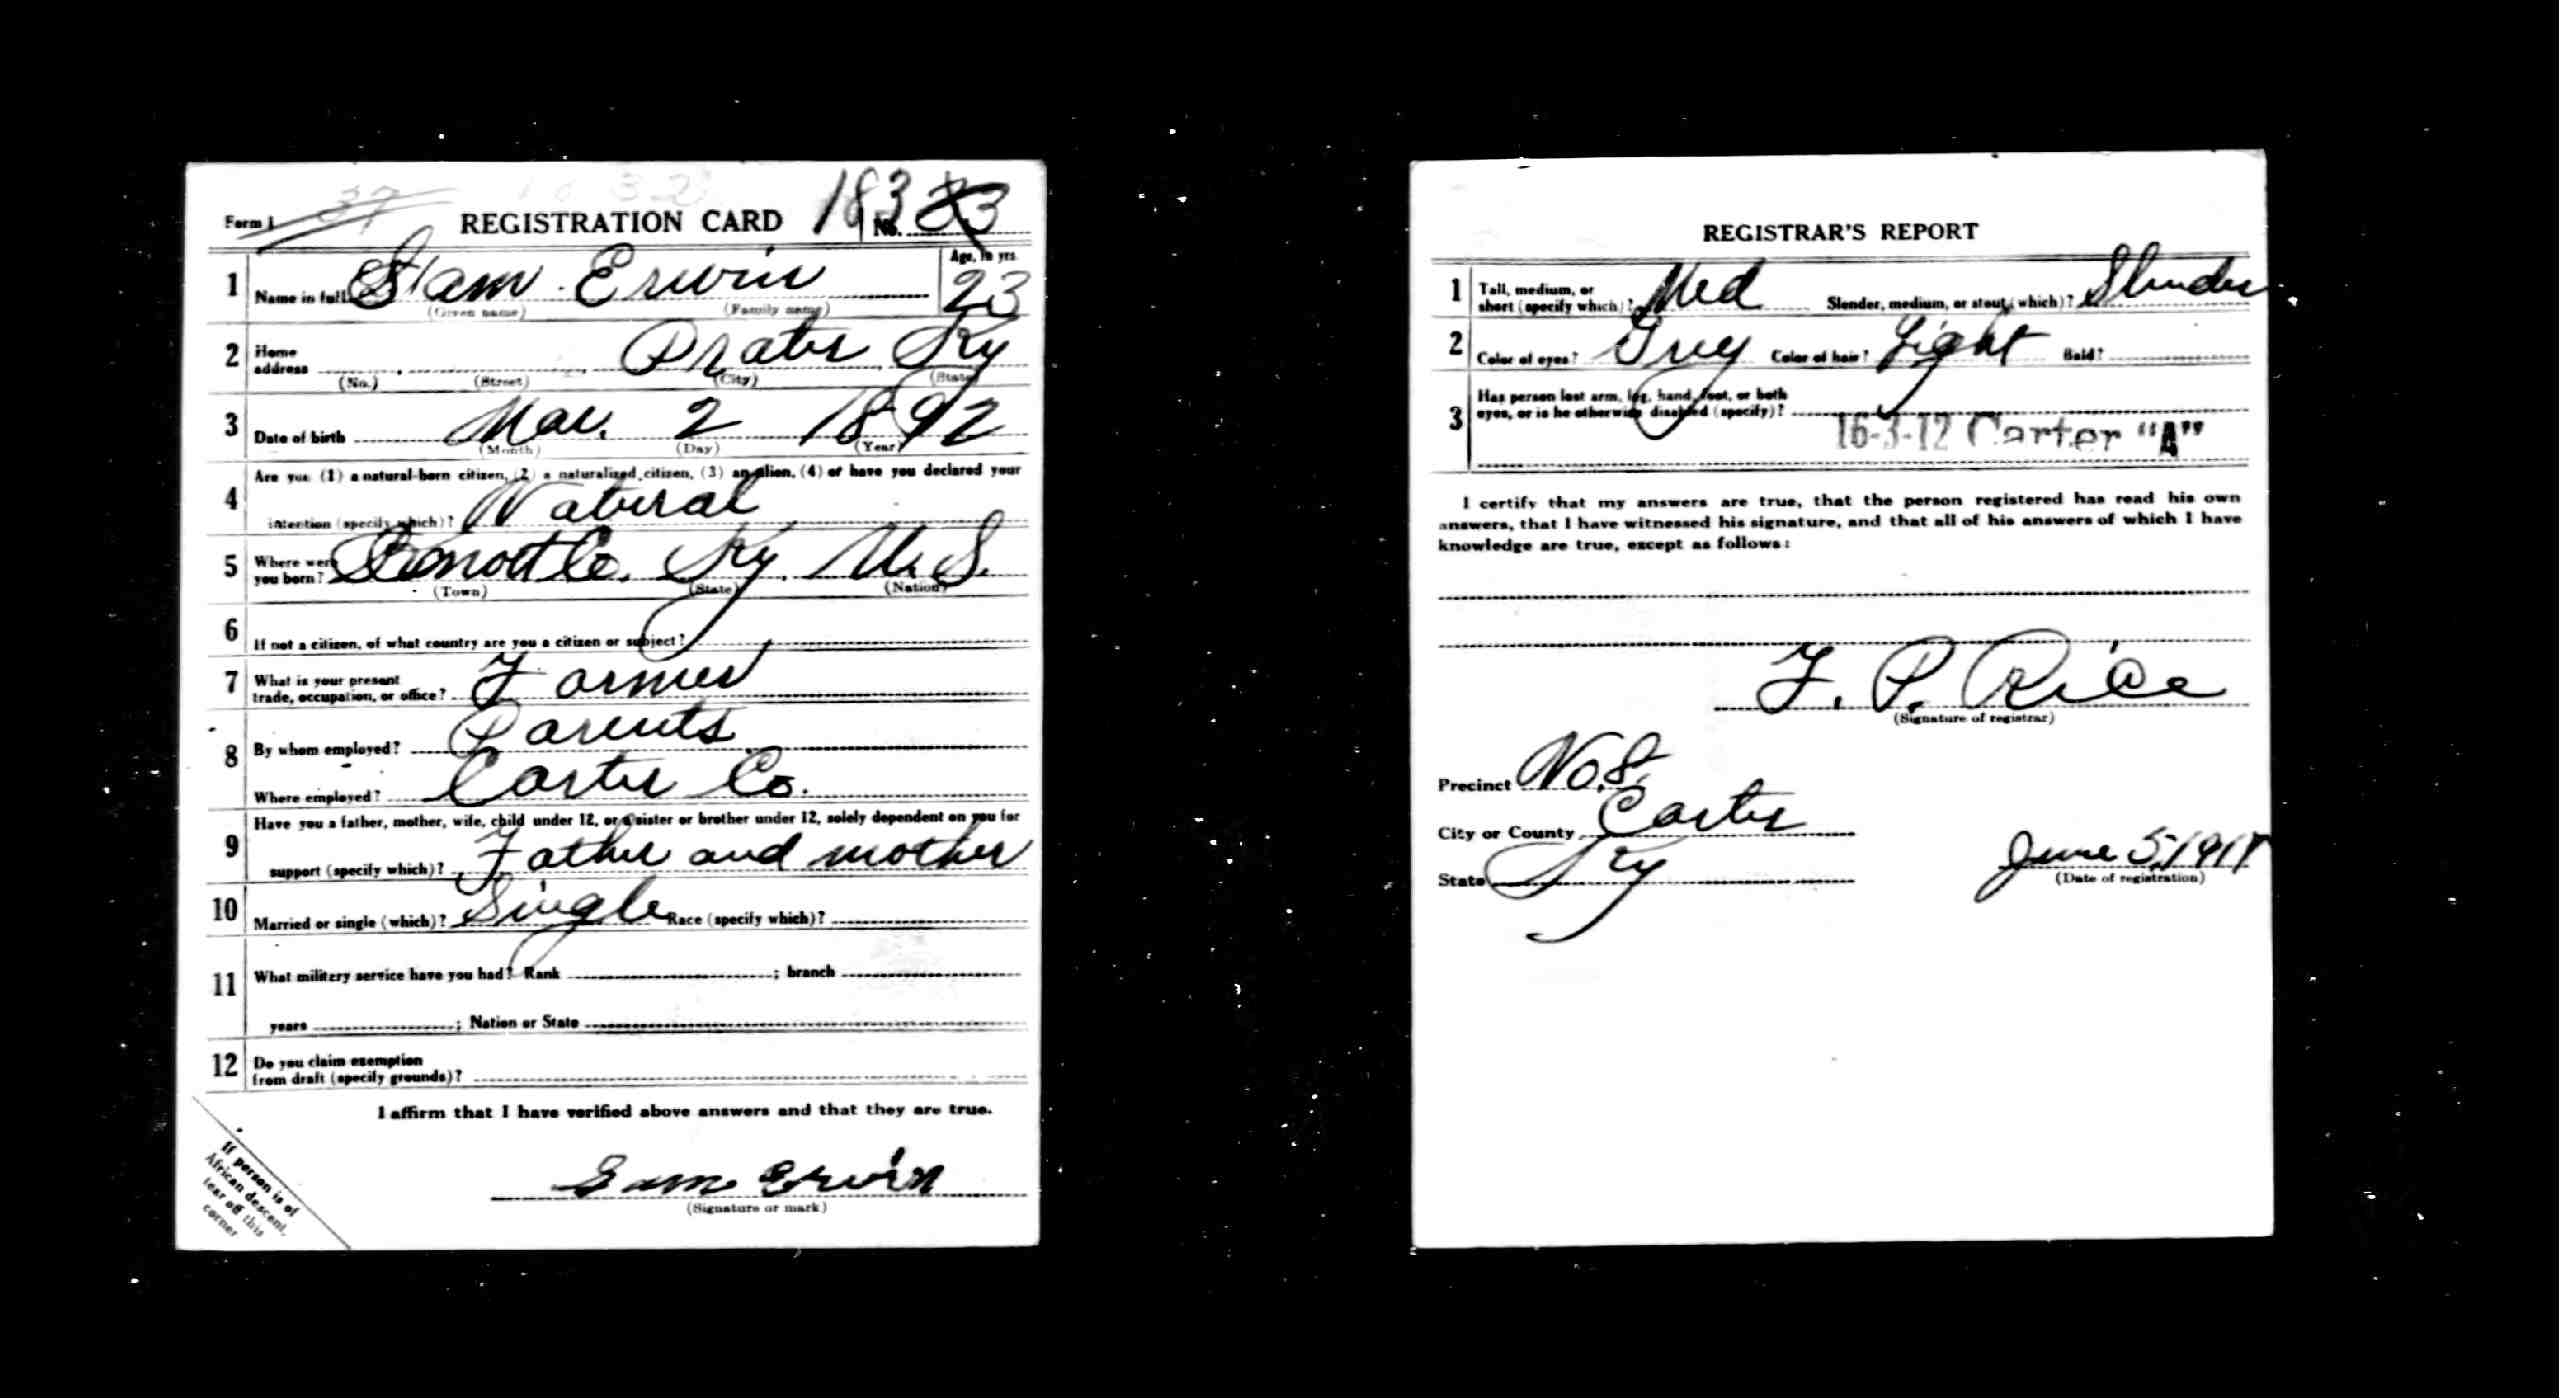 Form 1 37 REGISTRATION CARD 183 No. 33
1 Name in full Sam Erwin Age, in yrs. 23
(Given name) (Family name)
2 Home address Prater Ky
(No.) (Street) (City) (State)
3 Date of birth Mar. 2 1892
(Month) (Day) (Year)
4 Are you (1) a natural-born citizen, (2) a naturalized citizen, (3) an alien, (4) or have you declared your
intention (specify which)? Natural
5 Where were you born? Co. Ky. U.S.
(Town) (State) (Nation)
6 If not a citizen, of what country are you a citizen or subject?
7 What is your present
trade, occupation, or office? Farmer
8 By whom employed? Parents
Where employed? Carter Co.
9 Have you a father, mother, wife, child under 12, or a sister or brother under 12, solely dependent on you for
support (specify which)? Father and mother
10 Married or single (which)? Single Race (specify which)?
11 What military service have you had? Rank ; branch
years ; Nation or State
12 Do you claim exemption
from draft (specify grounds)?
I affirm that I have verified above answers and that they are true.
Sam Erwin
(Signature or mark)
If person is of
African descent,
tear off this
corner
REGISTRAR'S REPORT
1 Tall, medium, or
short (specify which)? Med Slender, medium, or stout (which)? Slender
2 Color of eyes? Grey Color of hair? Light Bald?
3 Has person lost arm, leg, hand, foot, or both
eyes, or is he otherwise disabled (specify)?
16-3-12 Carter "A"
I certify that my answers are true, that the person registered has read his own
answers, that I have witnessed his signature, and that all of his answers of which I have
knowledge are true, except as follows:
F. P. Rice
(Signature of registrar)
Precinct No. 8
City or County Carter
State Ky
June 5, 1917
(Date of registration)